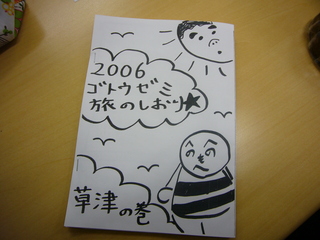 2006
ゴトウゼミ
旅のしおり★
草津の巻